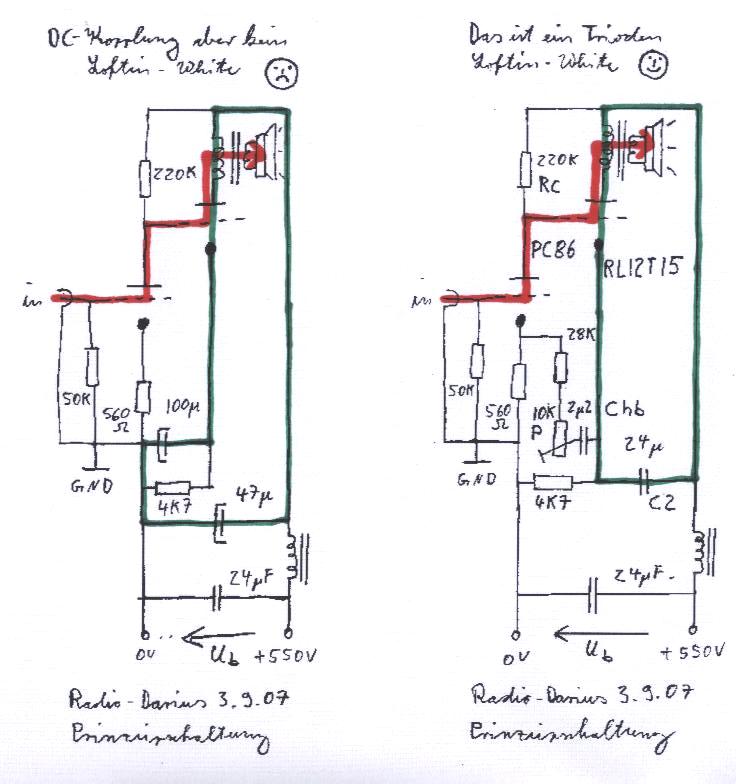 DC-Kopplung aber kein
Loftin-White
220K
in
50K
560
Ω
100µ
GND
4K7
47µ
24µF
0V
Ub
+550V
Radio-Darius 3.9.07
Prinzipschaltung
Das ist ein Trioden
Loftin-White
220K
RC
PC86
RL12T15
in
28K
50K
560
Ω
10K
P
2µ2
Chb
24µ
GND
4K7
C2
24µF.
0V
Ub
+550V
Radio-Darius 3.9.07
Prinzipschaltung